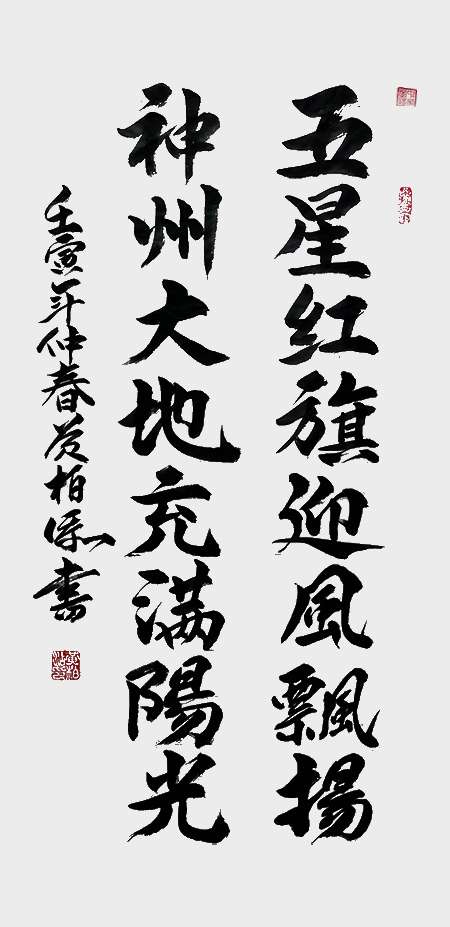 五星红旗迎風飄揚
神州大地充满陽光
壬寅年仲春黄柏添書